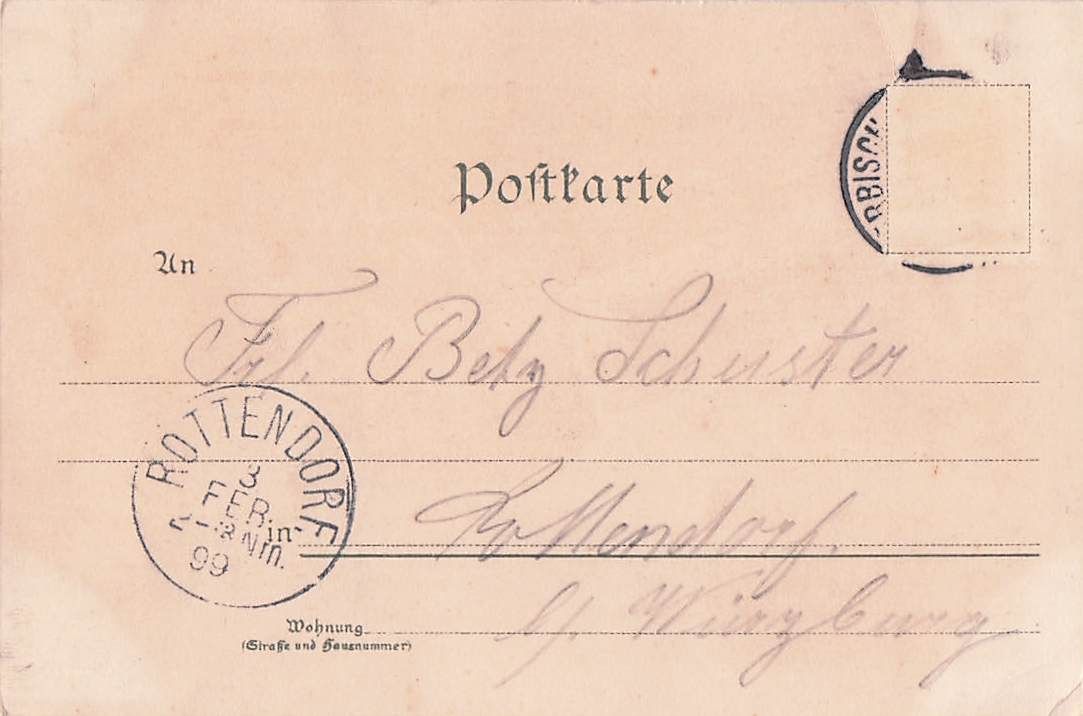 Postkarte
RBISCH
An
Frl. Bety Schuster
ROTTENDORF
3
FEB.
2-3 Nm.
99
in Rottendorf.
b/ Würzburg
Wohnung
(Straße und Hausnummer)